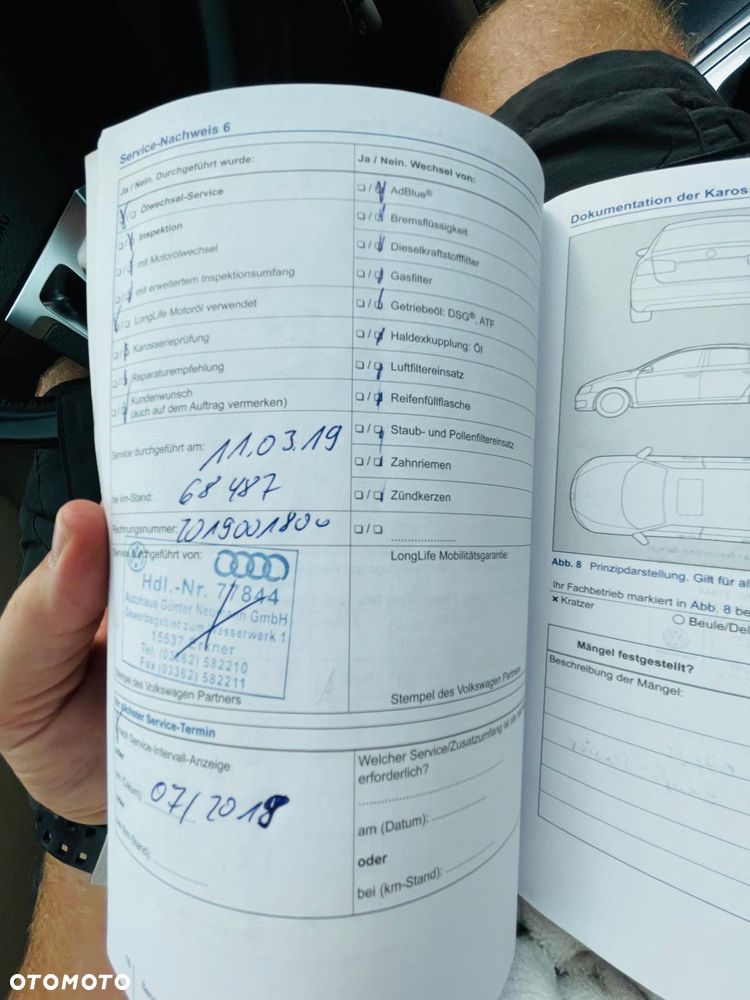 Service-Nachweis 6
Ja / Nein. Durchgeführt wurde:
Ölwechsel-Service
Inspektion
mit Motorölwechsel
mit erweitertem Inspektionsumfang
LongLife Motoröl verwendet
Karosserieprüfung
Reparaturempfehlung
Kundenwunsch
(auch auf dem Auftrag vermerken)
Service durchgeführt am: 11.03.19
bei km-Stand: 68 487
Rechnungsnummer:
Service durchgeführt von:
Hdl.-Nr. 77844
Autohaus Günter GmbH
Gewerbegebiet zum Wasserwerk 1
15537 Erkner
Tel. (03362) 582210
Fax (03362) 582211
Stempel des Volkswagen Partners
Ihr nächster Service-Termin
nach Service-Intervall-Anzeige
oder
am (Datum): 07/2018
oder
bei (km-Stand):
Ja / Nein. Wechsel von:
AdBlue®
Bremsflüssigkeit
Dieselkraftstofffilter
Gasfilter
Getriebeöl: DSG®, ATF
Haldexkupplung: Öl
Luftfiltereinsatz
Reifenfüllflasche
Staub- und Pollenfiltereinsatz
Zahnriemen
Zündkerzen
LongLife Mobilitätsgarantie:
Stempel des Volkswagen Partners
Welcher Service/Zusatzumfang ist
erforderlich?
am (Datum):
oder
bei (km-Stand):
Dokumentation der Karos
Abb. 8 Prinzipdarstellung. Gilt für al
Ihr Fachbetrieb markiert in Abb. 8 be
× Kratzer
Beule/Del
Mängel festgestellt?
Beschreibung der Mängel:
OTOMOTO